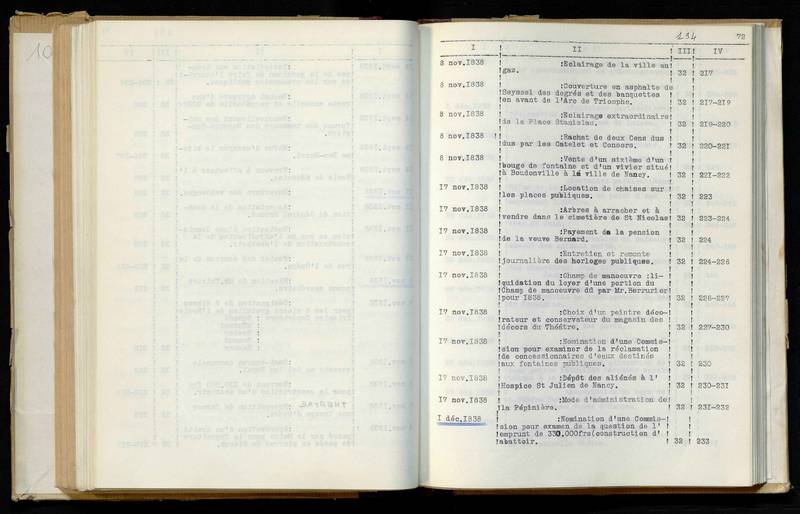 10
134
72
I II III IV
8 nov.I838 :Eclairage de la ville au
gaz. 32 217
8 nov.I838 :Couverture en asphalte de
Seyssel des degrés et des banquettes
en avant de l'Arc de Triomphe. 32 217-219
8 nov.I838 :Eclairage extraordinaire
de la Place Stanislas. 32 219-220
8 nov.I838 :Rachat de deux Cens dus
dus par les Catelet et Consors. 32 220-22I
8 nov.I838 :Vente d'un sixième d'un
bouge de fontaine et d'un vivier situé
à Boudonville à la ville de Nancy. 32 22I-222
I7 nov.I838 :Location de chaises sur
les places publiques. 32 223
I7 nov.I838 :Arbres à arracher et à
vendre dans le cimetière de St Nicolas 32 223-224
I7 nov.I838 :Payement de la pension
de la veuve Bernard. 32 224
I7 nov.I838 :Entretien et remonte
journalière des horloges publiques. 32 224-226
I7 nov.I838 :Champ de manoeuvre :li-
quidation du loyer d'une portion du
Champ de manoeuvre dû par Mr.Berrurier
pour I838. 32 226-227
I7 nov.I838 :Choix d'un peintre déco-
rateur et conservateur du magasin des
décors du Théâtre. 32 227-230
I7 nov.I838 :Nomination d'une Commis-
sion pour examiner de la réclamation
de concessionnaires d'eaux destinés
aux fontaines publiques. 32 230
I7 nov.I838 :Dépôt des aliénés à l'
Hospice St Julien de Nancy. 32 230-23I
I7 nov.I838 :Mode d'administration de
la Pépinière. 32 23I-232
I déc.I838 :Nomination d'une Commis-
sion pour examen de la question de l'
emprunt de 330.000frs(construction d'
abattoir. 32 233